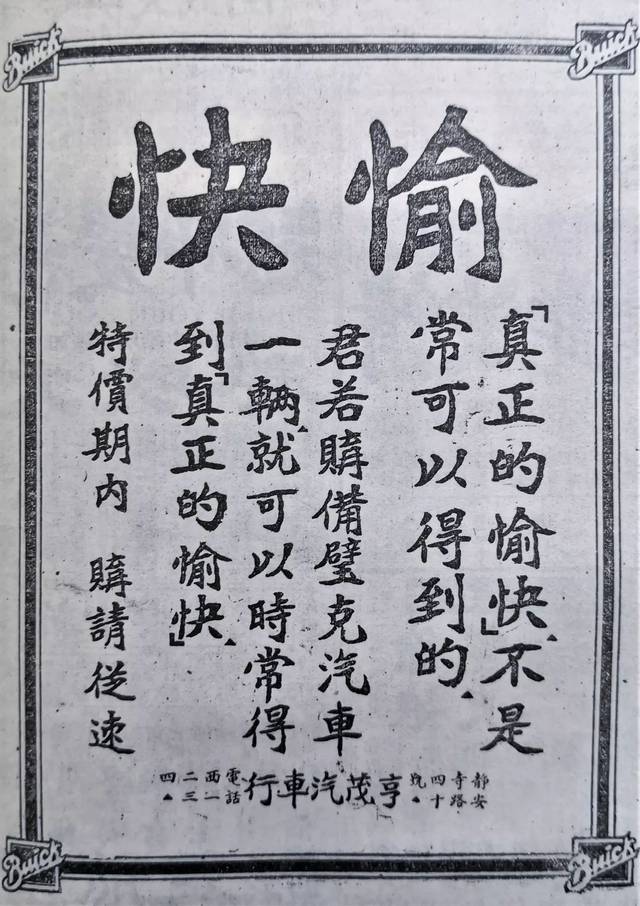 Buick
Buick
愉快
「真正的愉快」不是
常可以得到的.
君若購備璧克汽車
一輛,就可以時常得
到「真正的愉快」.
特價期內 購請從速
靜安寺路四十號▲
亨茂汽車行
電話西一二三四▲
Buick
Buick